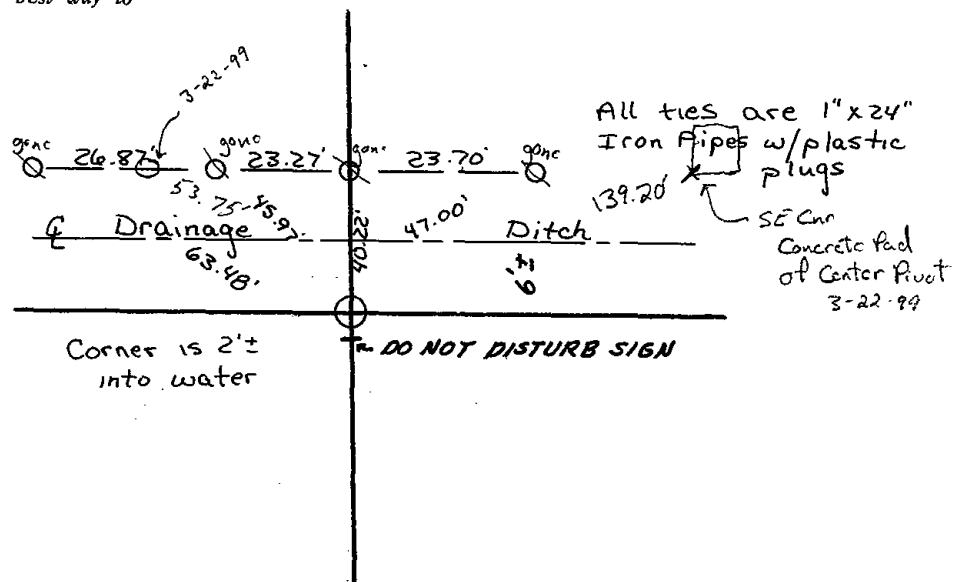 best way to
3-22-99
All ties are 1" x 24"
Iron Pipes w/plastic
plugs
gone 26.87' gone 23.27' gone 23.70' gone
53.75 45.97' 47.00' 139.20'
SE Cnr
Concrete Pad
of Center Pivot
3-22-99
℄ Drainage Ditch
63.48' 40.22' 9'±
Corner is 2'±
into water
DO NOT DISTURB SIGN